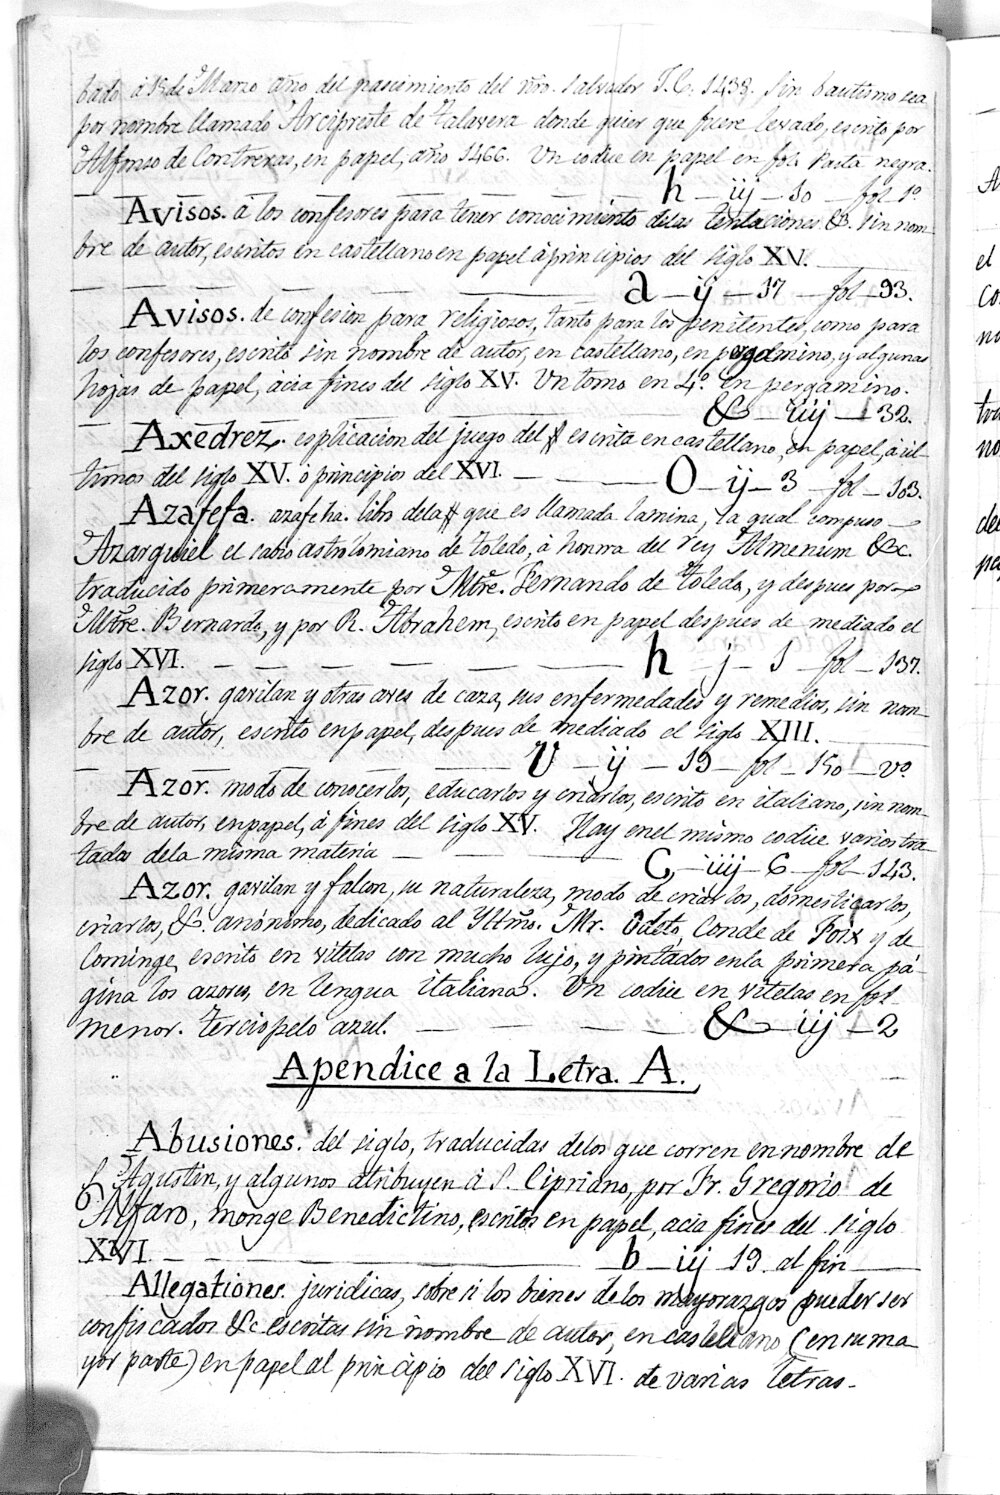 bado á 15 de Marzo año del nascimiento del nro. salvador J.C. 1438. sin bautismo sea
por nombre llamado Arcipreste de Talavera donde quier que fuere levado, escrito por
Alfonso de Contreras, en papel, año 1466. Un codice en papel en fol. Pasta negra.
h — iij — 10 — fol 1º
Avisos. á los confesores para tener conocimiento delas tentaciones &. sin nom-
bre de autor, escritos en castellano en papel á principios del siglo XV.
a — ij — 17 — fol 93.
Avisos. de confesion para religiosos, tanto para los penitentes, como para
los confesores, escrito sin nombre de autor, en castellano, en pergamino, y algunas
hojas de papel, ácia fines del siglo XV. Un tomo en 4º. en pergamino.
& — iiij — 32.
Axedrez. esplicacion del juego del # escrita en castellano, en papel, á úl-
timos del siglo XV. ó principios del XVI. — O — ij — 3 — fol — 103.
Azafefa. azafcha. libro dela # que es llamada lamina, la qual compuso
Azarquiel el sabio astrolomiano de Toledo, á honrra del rey Almenum &c.
traducido primeramente por Mtre. Fernando de Toledo, y despues por
Mtre. Bernardo, y por R. Abrahem, escrito en papel despues de mediado el
siglo XVI. — h — j — 1 — fol — 137.
Azor. gavilan y otras aves de caza, sus enfermedades y remedios, sin nom-
bre de autor, escrito en papel, despues de mediado el siglo XIII.
V — ij — 19 — fol — 150 — vº
Azor. modo de conocerlos, educarlos y criarlos, escrito en italiano, sin nom-
bre de autor, en papel, á fines del siglo XV. Hay en el mismo codice varios tra-
tados dela misma materia — C — iiij — 6 — fol — 143.
Azor. gavilan y falcon, su naturaleza, modo de criarlos, domesticarlos,
criarlos, &. anónimo, dedicado al Yltmo. Mr. Odeto, Conde de Foix y de
Cominge, escrito en vitelas con mucho lujo, y pintados en la primera pá-
gina los azores, en lengua italiana. Un codice en vitelas en fol.
menor. terciopelo azul. — & — iij — 2
Apendice a la Letra. A.
Abusiones. del siglo, traducidas delos que corren en nombre de
S. Agustin, y algunos atribuyen á S. Cipriano, por Fr. Gregorio de
Alfaro, monge Benedictino, escritos en papel, acia fines del siglo
XVI. — b — iij 19. al fin
Allegationes. juridicas, sobre si los bienes de los mayorazgos pueder ser
confiscados &c escritas sin nombre de autor, en castellano (en su ma
yor parte) en papel al principio del siglo XVI. de varias letras.